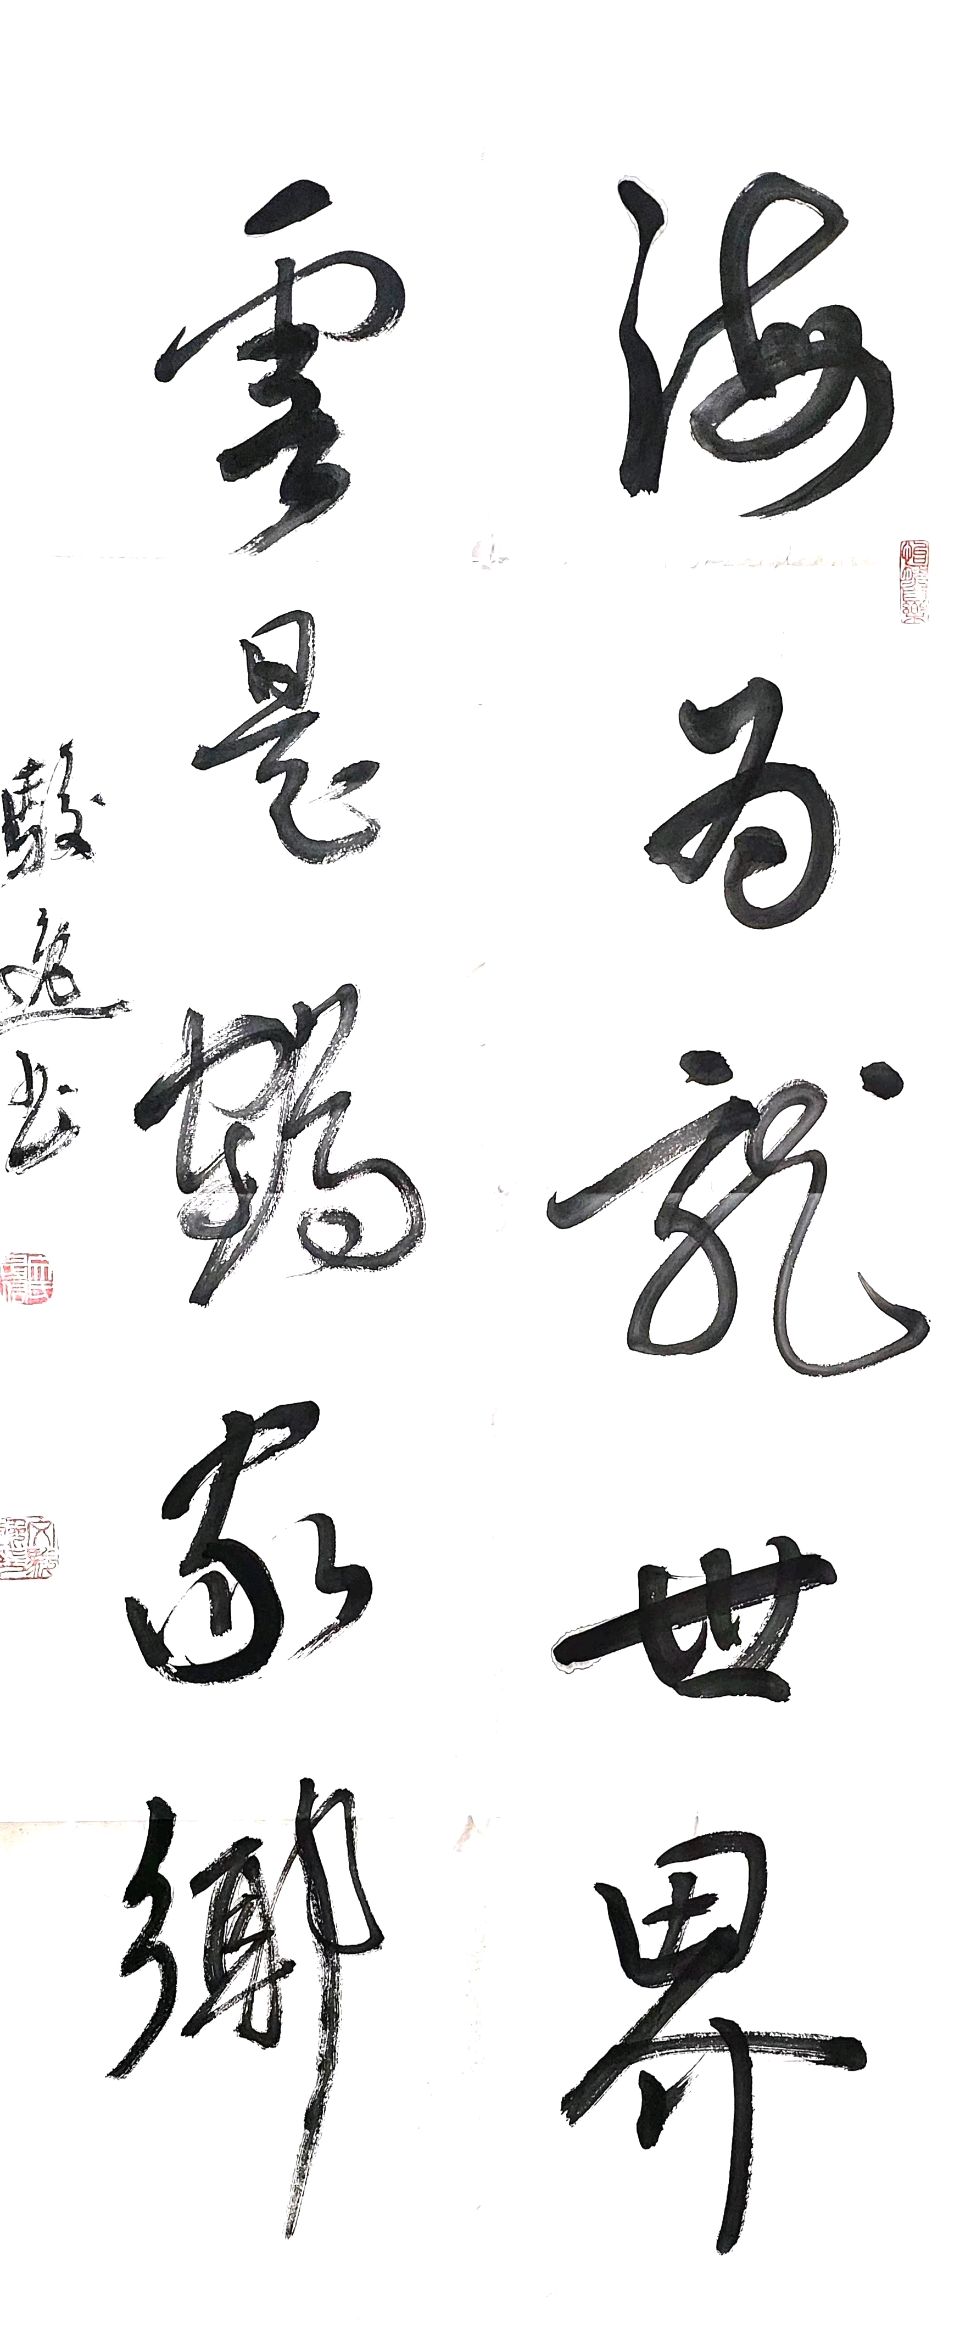 海為龍世界
雲是鶴家鄉
駿逸书